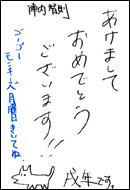 陣内智則
あけまして
おめでとう
ございます!!
ゴーゴー
モンキーズ月曜きいてね。
戌年です。